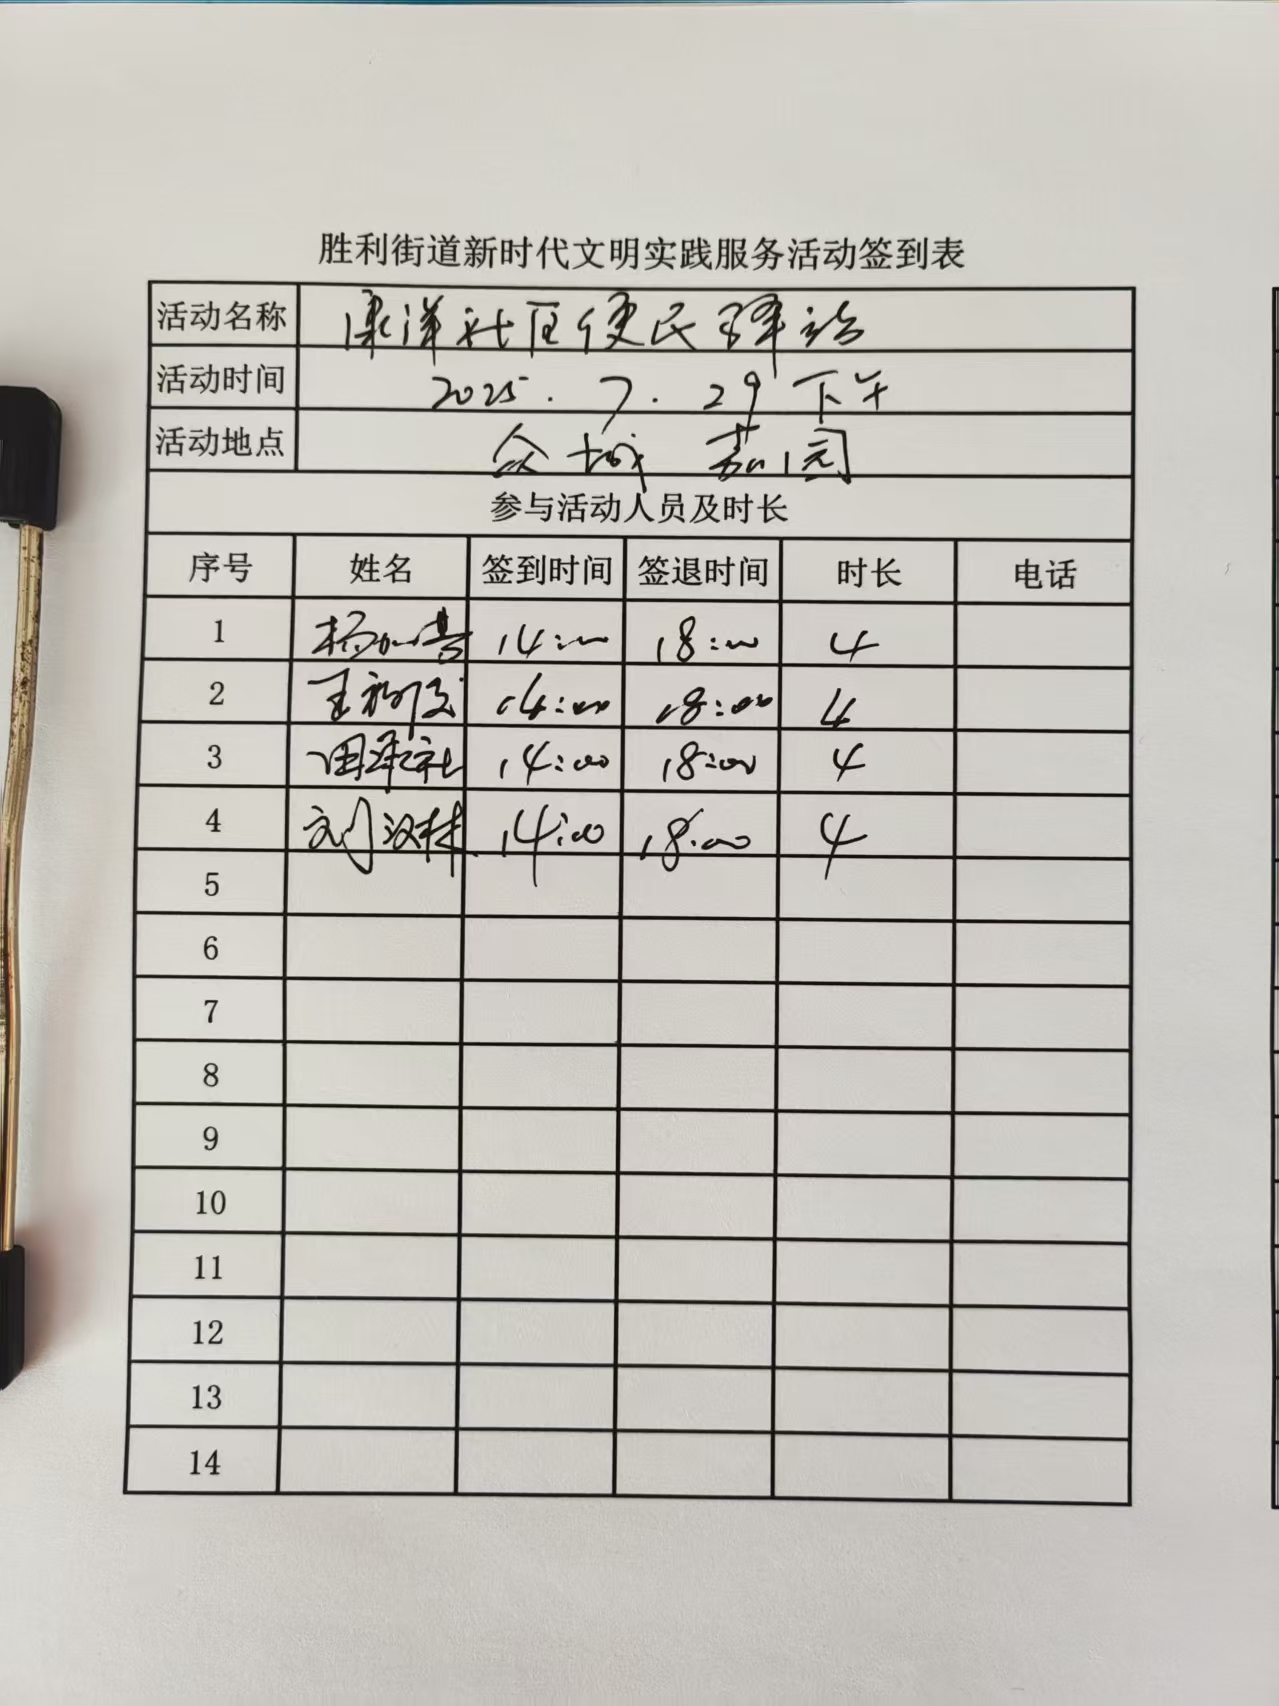 胜利街道新时代文明实践服务活动签到表
活动名称 康洋社区便民驿站
活动时间 2025.7.29下午
活动地点 众城嘉园
参与活动人员及时长
序号 姓名 签到时间 签退时间 时长 电话
1 14:00 18:00 4
2 14:00 18:00 4
3 14:00 18:00 4
4 刘汉林 14:00 18:00 4
5
6
7
8
9
10
11
12
13
14